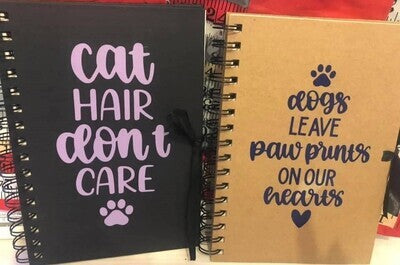 cat
HAIR
don't
CARE
dogs
LEAVE
paw prints
ON OUR
hearts